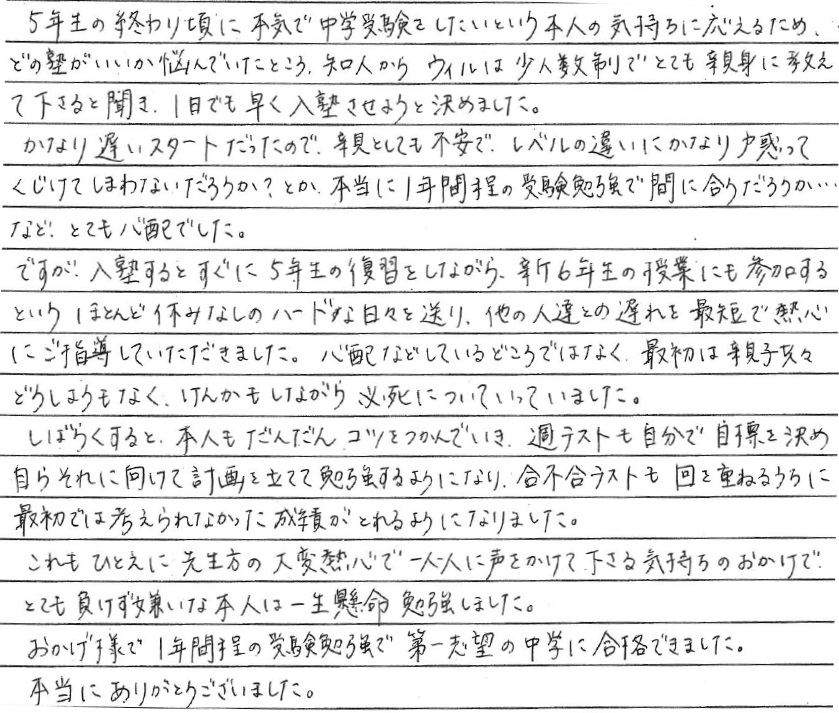 ５年生の終わり頃に本気で中学受験をしたいという本人の気持ちに応えるため、
どの塾がいいか悩んでいたところ、知人から ウィルは少人数制でとても親身に教え
て下さると聞き、１日でも早く入塾させようと決めました。
かなり遅いスタートだったので、親としても不安で、レベルの違いにかなり戸惑って
くじけてしまわないだろうか？とか、本当に１年間程の受験勉強で間に合うだろうか…
など、とても心配でした。
ですが、入塾するとすぐに５年生の復習をしながら、新６年生の授業にも参加する
という ほとんど休みなしのハードな日々を送り、他の人達との遅れを最短で熱心
にご指導していただきました。心配などしているどころではなく、最初は親子共々
どうしようもなく、けんかもしながら必死についていっていました。
しばらくすると、本人もだんだんコツをつかんでいき、週テストも自分で目標を決め
自らそれに向けて計画を立てて勉強するようになり、合不合テストも回を重ねるうちに
最初では考えられなかった成績がとれるようになりました。
これもひとえに先生方の大変熱心で一人一人に声をかけて下さる気持ちのおかげで、
とても負けず嫌いな本人は一生懸命勉強しました。
おかげ様で１年間程の受験勉強で第一志望の中学に合格できました。
本当にありがとうございました。